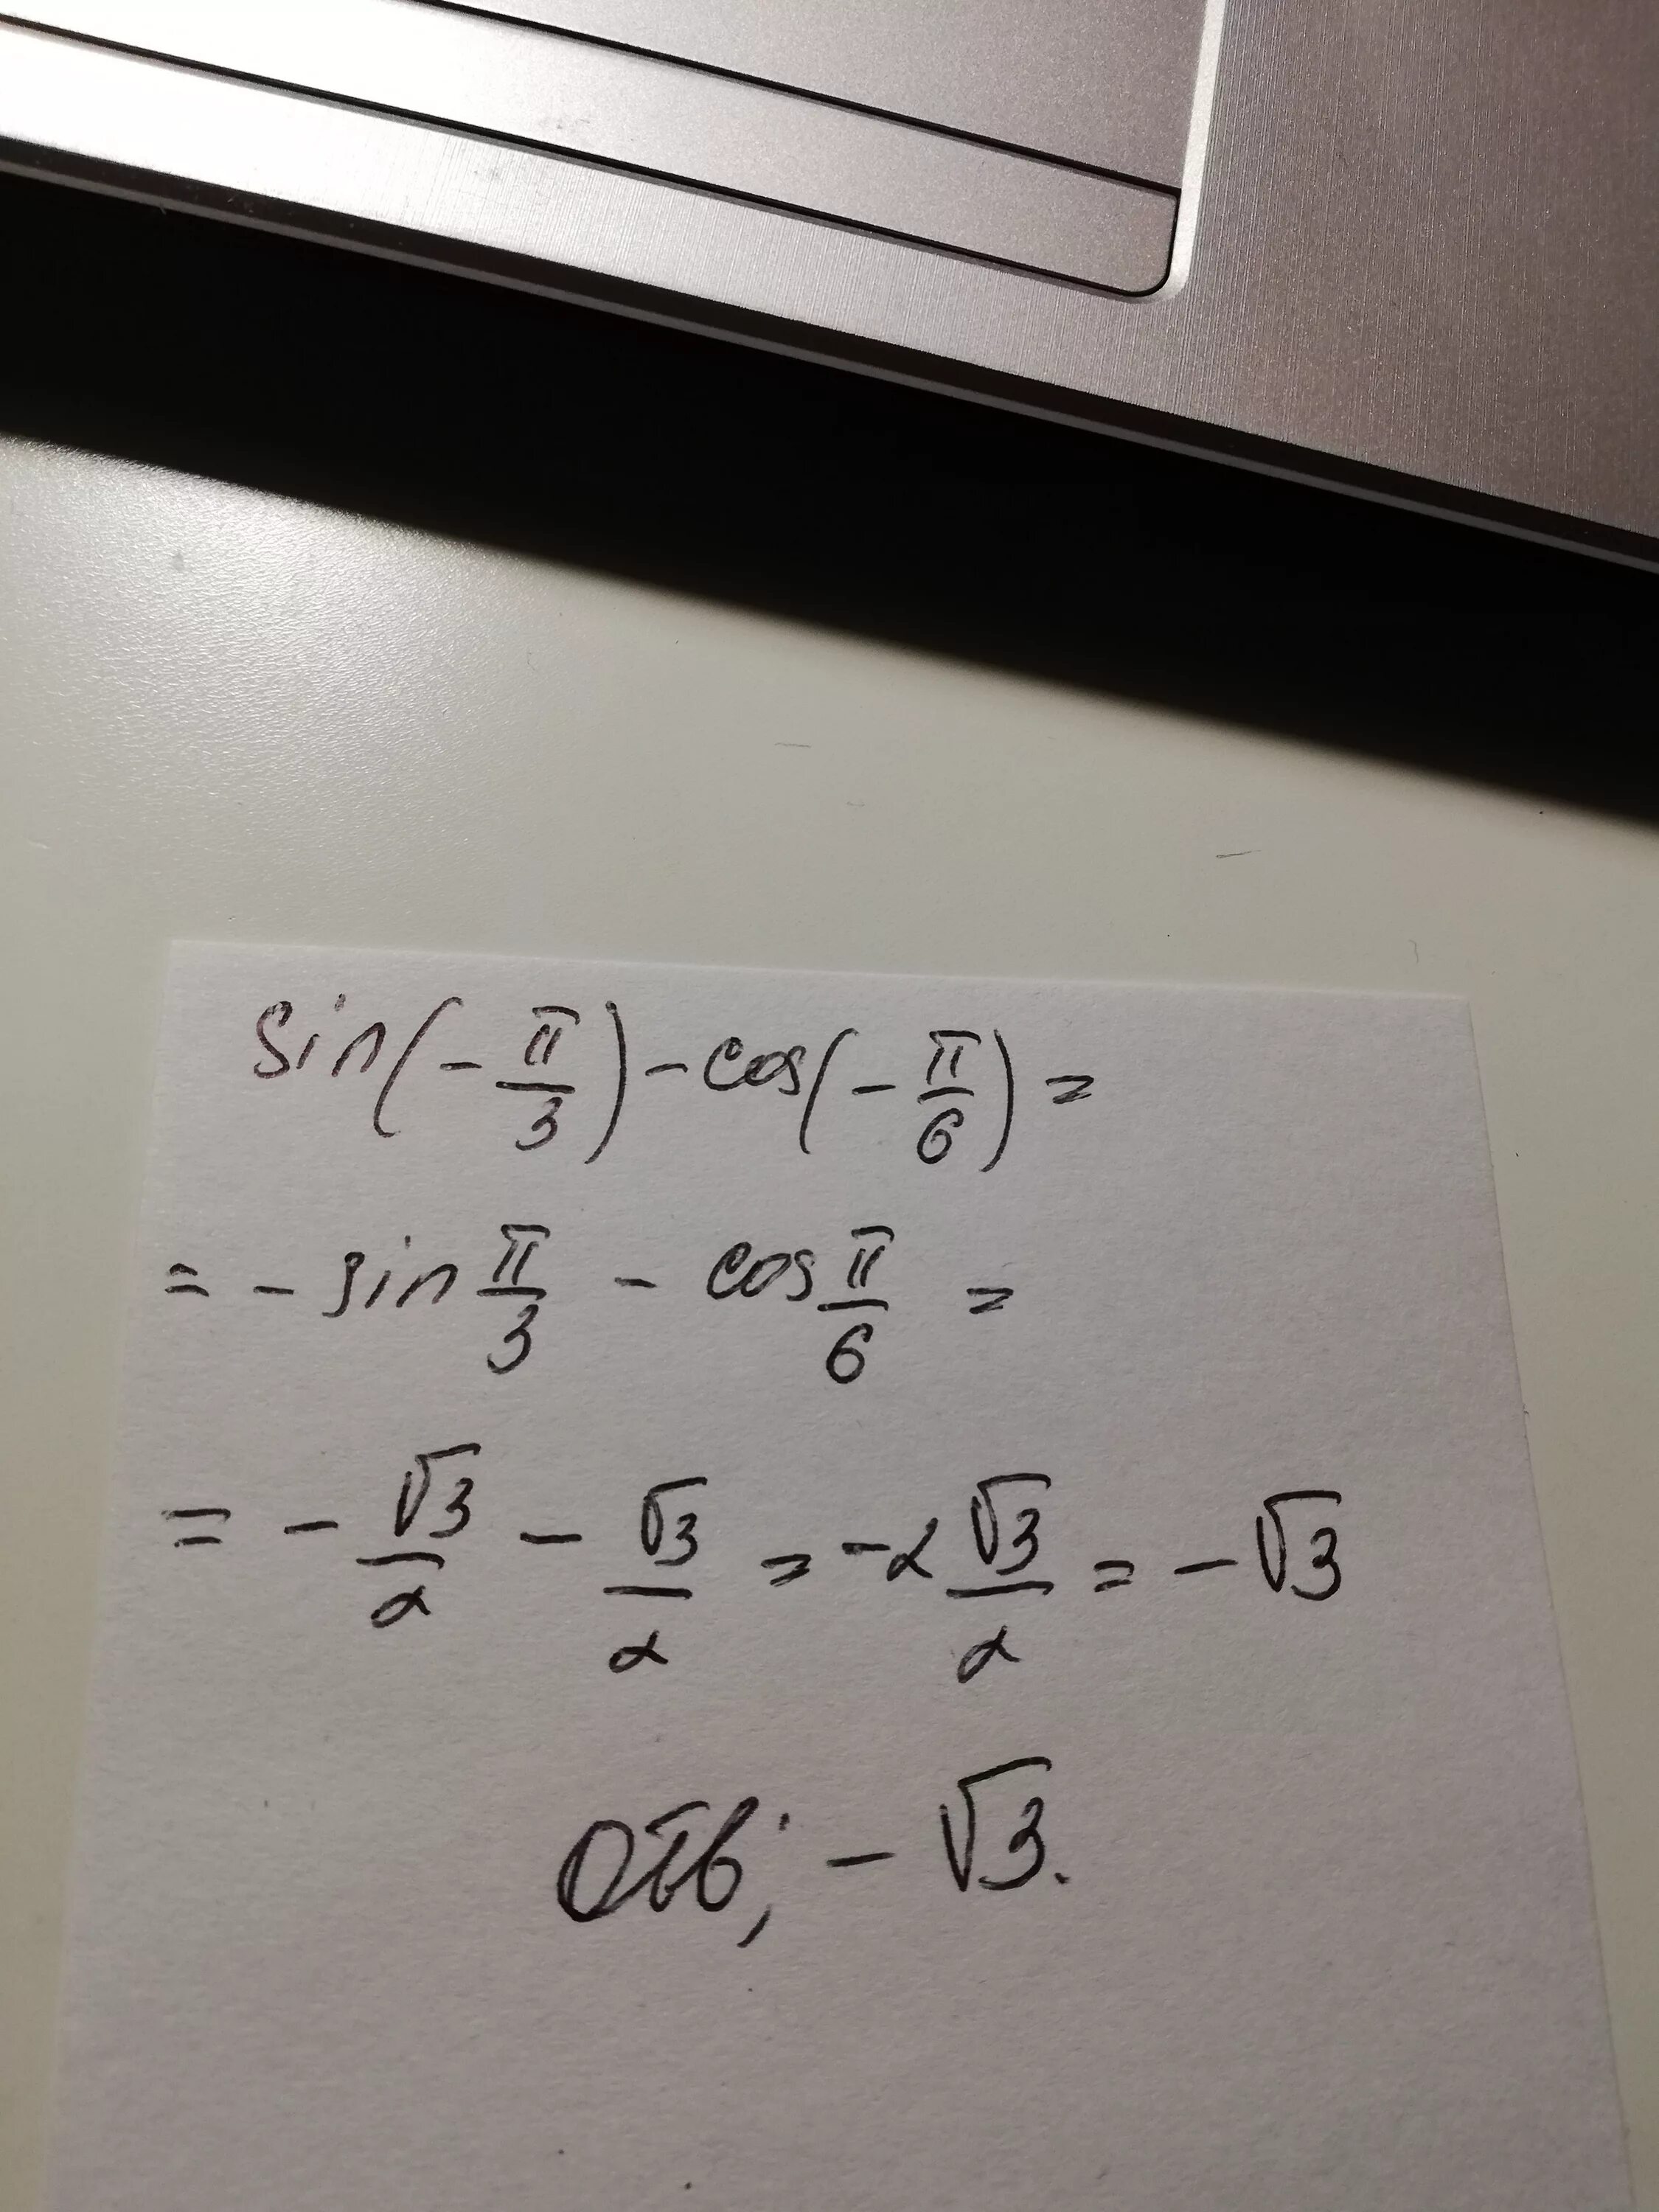 sin(-π/3) - cos(-π/6) =
= - sin π/3 - cos π/6 =
= - √3/2 - √3/2 = -2 √3/2 = - √3
Отв; - √3.